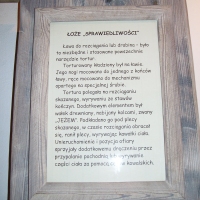 ŁOŻE „SPRAWIEDLIWOŚCI"
Ława do rozciągania lub drabina - było
to niezbędne i stosowane powszechnie
narzędzie tortur.
Torturowany kładziony był na ławie.
Jego nogi mocowano do jednego z końców
ławy, ręce mocowano do mechanizmu
opartego na specjalnej dźwigni.
Tortura polegała na rozciąganiu
skazanego, wyrywaniu ze stawów
kończyn. Dodatkowym elementem był
wałek drewniany, nabijany kolcami, zwany
„JEŻEM". Podkładano go pod plecy
skazanego, w czasie rozciągania obracał
się, ranił plecy, wyrywając kawałki ciała.
Unieruchomienie i pozycja ofiary
sprzyjały dodatkowemu dręczeniu przez
przypalanie pochodnią lub wyrywanie
części ciała za pomocą kowalskich.